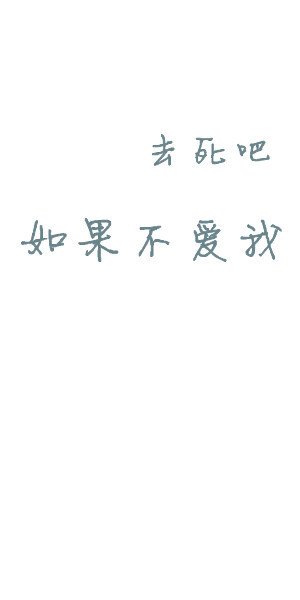 去死吧
如果不爱我